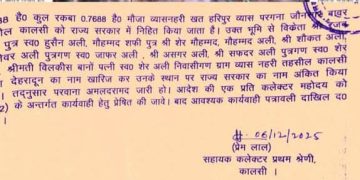 है0 कुल रकबा 0.7688 है0 मौजा व्यासनहरी खत हरिपुर ब्यास परगना जौनसार बावर
कालसी को राज्य सरकार में निहित किया जाता है। उक्त भूमि के विक्रेता
पुत्र स्व0 हुसैन अली, मौहम्मद शफी पुत्र श्री शेर मौहम्मद, मौहम्मद अली, श्री शौकत अली
अली पुत्रगण स्व0 जाफर अली, श्री असगर अली, श्री सफदर अली पुत्रगण स्व0 शेर
श्रीमती विलकीस बानों पत्नी स्व0 शेर अली निवासीगण ग्राम व्यास नहरी तहसील कालसी
देहरादून का नाम खारिज कर उनके स्थान पर राज्य सरकार का नाम अंकित किया
। तद्नुसार परवाना अमलदरामद जारी हो। आदेश की एक प्रति कलेक्टर महोदय को
2) के अन्तर्गत कार्यवाही हेतु प्रेषित की जावे। बाद आवश्यक कार्यवाही पत्रावली दाखिल द0
06/12/2025
(प्रेम लाल)
सहायक कलेक्टर प्रथम श्रेणी,
कालसी ।